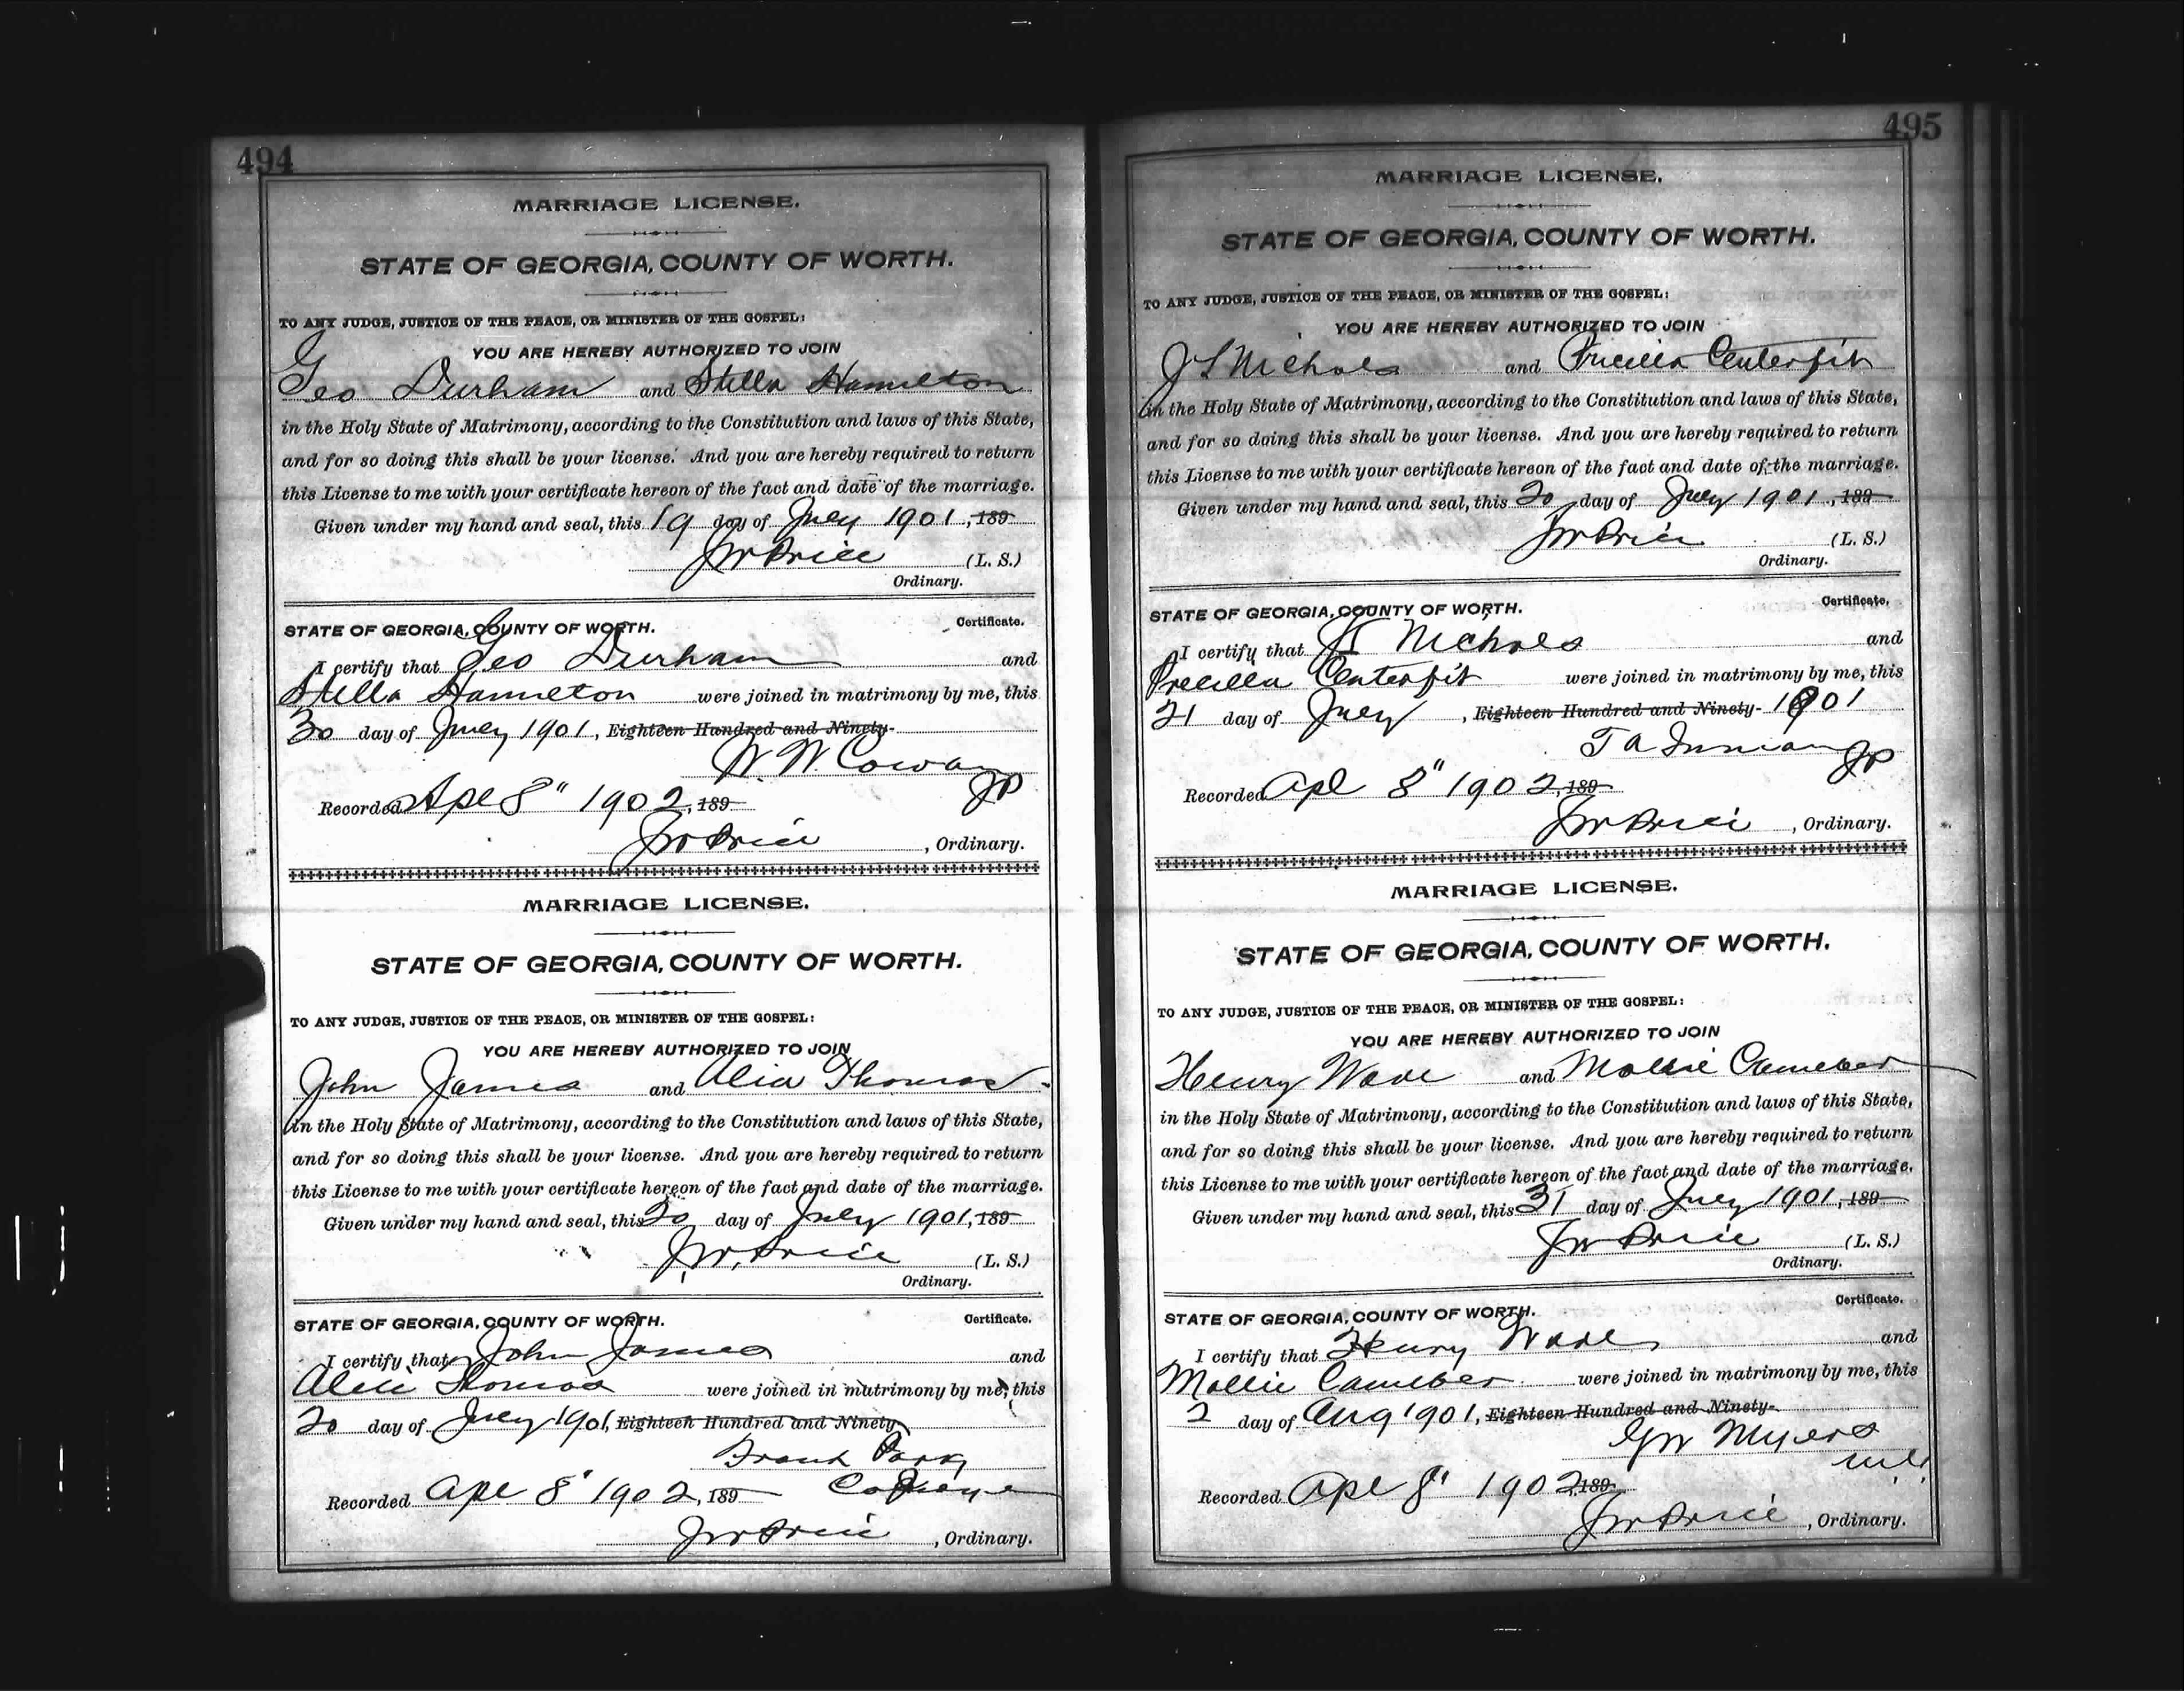 494
MARRIAGE LICENSE.
STATE OF GEORGIA, COUNTY OF WORTH.
TO ANY JUDGE, JUSTICE OF THE PEACE, OR MINISTER OF THE GOSPEL:
YOU ARE HEREBY AUTHORIZED TO JOIN
Geo Durham and Stella Hamilton
in the Holy State of Matrimony, according to the Constitution and laws of this State,
and for so doing this shall be your license. And you are hereby required to return
this License to me with your certificate hereon of the fact and date of the marriage.
Given under my hand and seal, this 19 day of July 1901, 189
JW Price (L. S.)
Ordinary.
STATE OF GEORGIA, COUNTY OF WORTH. Certificate.
I certify that Geo Durham and
Stella Hamilton were joined in matrimony by me, this
30 day of July 1901, Eighteen Hundred and Ninety-
W. W. Cowan
JP
Recorded Apl 8" 1902, 189
JW Price, Ordinary.
MARRIAGE LICENSE.
STATE OF GEORGIA, COUNTY OF WORTH.
TO ANY JUDGE, JUSTICE OF THE PEACE, OR MINISTER OF THE GOSPEL:
YOU ARE HEREBY AUTHORIZED TO JOIN
John James and Thomas
in the Holy State of Matrimony, according to the Constitution and laws of this State,
and for so doing this shall be your license. And you are hereby required to return
this License to me with your certificate hereon of the fact and date of the marriage.
Given under my hand and seal, this 20 day of July 1901, 189
J.W. Price (L. S.)
Ordinary.
STATE OF GEORGIA, COUNTY OF WORTH. Certificate.
I certify that John James and
Thomas were joined in matrimony by me, this
20 day of July 1901, Eighteen Hundred and Ninety
Frank Park
Recorded Apl 8" 1902, 189
JW Price, Ordinary.
495
MARRIAGE LICENSE.
STATE OF GEORGIA, COUNTY OF WORTH.
TO ANY JUDGE, JUSTICE OF THE PEACE, OR MINISTER OF THE GOSPEL:
YOU ARE HEREBY AUTHORIZED TO JOIN
Nichols and Centerfit
in the Holy State of Matrimony, according to the Constitution and laws of this State,
and for so doing this shall be your license. And you are hereby required to return
this License to me with your certificate hereon of the fact and date of the marriage.
Given under my hand and seal, this 20 day of July 1901, 189
JW Price (L. S.)
Ordinary.
STATE OF GEORGIA, COUNTY OF WORTH. Certificate.
I certify that Nichols and
Centerfit were joined in matrimony by me, this
21 day of July, Eighteen Hundred and Ninety- 1901
T A Inman JP
Recorded Apl 8" 1902, 189
JW Price, Ordinary.
MARRIAGE LICENSE.
STATE OF GEORGIA, COUNTY OF WORTH.
TO ANY JUDGE, JUSTICE OF THE PEACE, OR MINISTER OF THE GOSPEL:
YOU ARE HEREBY AUTHORIZED TO JOIN
Henry Wade and Mollie
in the Holy State of Matrimony, according to the Constitution and laws of this State,
and for so doing this shall be your license. And you are hereby required to return
this License to me with your certificate hereon of the fact and date of the marriage.
Given under my hand and seal, this 31 day of July 1901, 189
JW Price (L. S.)
Ordinary.
STATE OF GEORGIA, COUNTY OF WORTH. Certificate.
I certify that Henry Wade and
Mollie were joined in matrimony by me, this
2 day of Aug 1901, Eighteen Hundred and Ninety-
GW Myers
Recorded Apl 8" 1902, 189
JW Price, Ordinary.